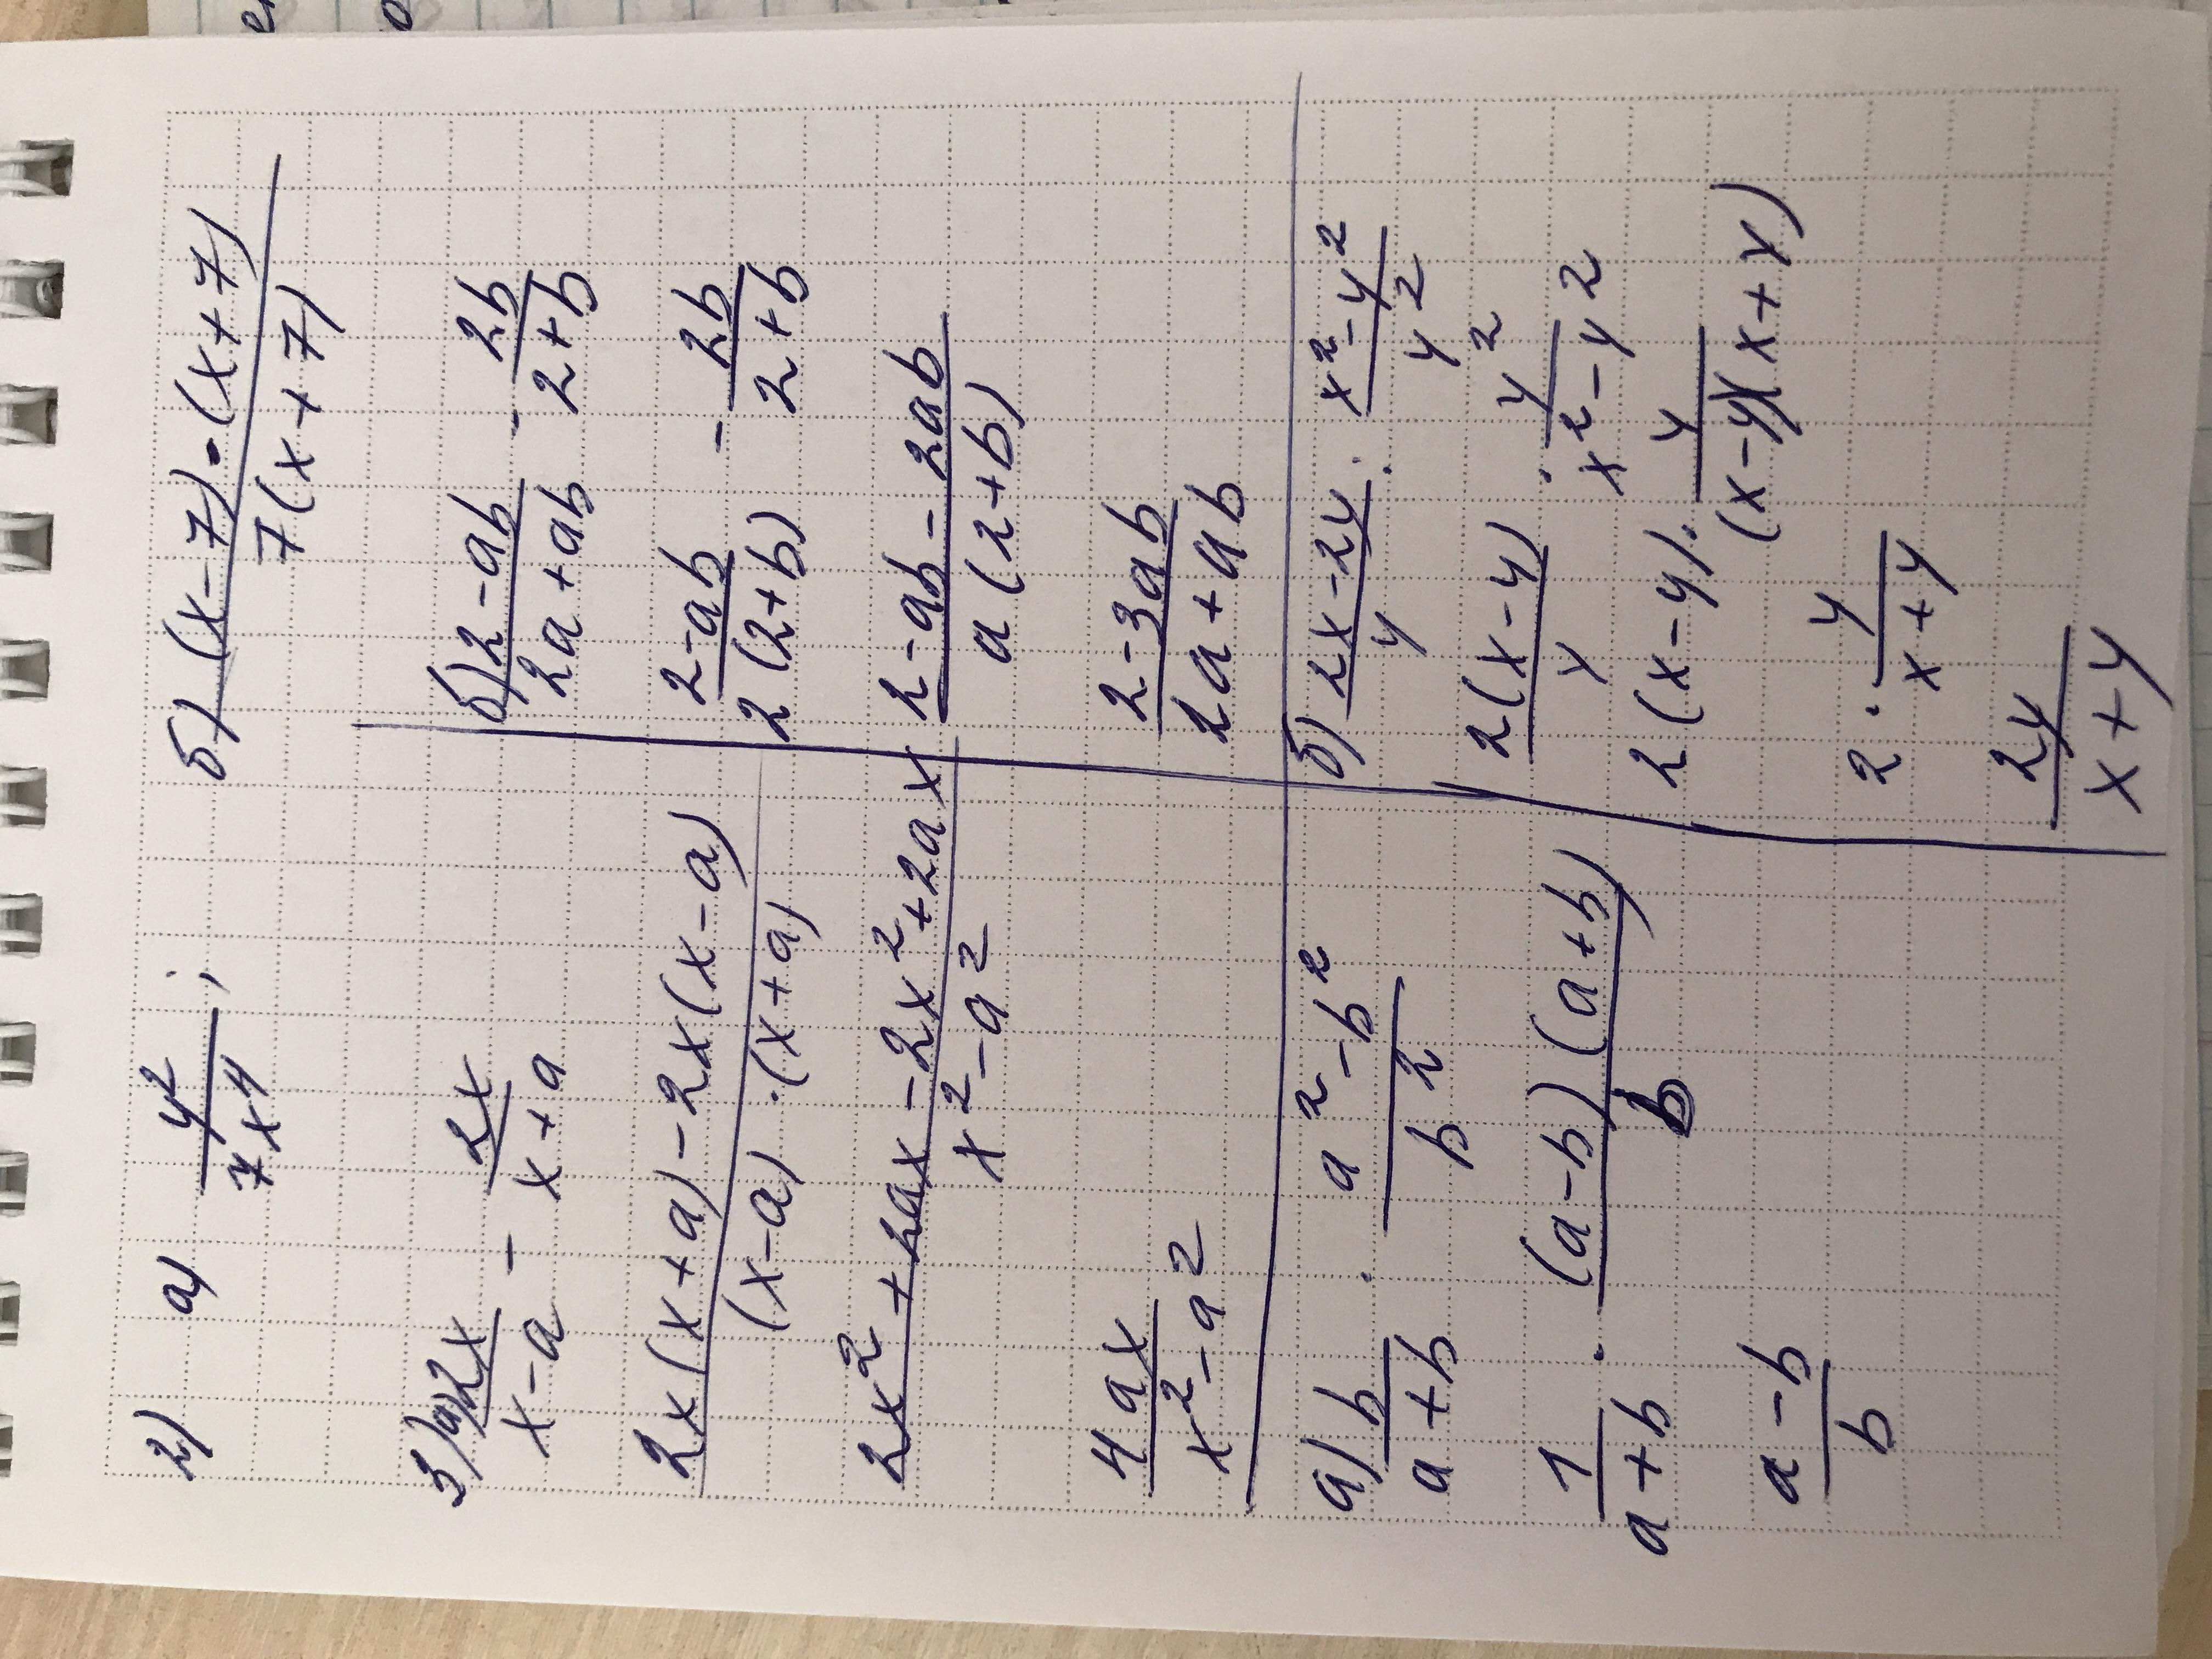 2) а) y²/7x4 ; б) (x-7)·(x+7)/7(x+7)
3) а) 2x/x-a - 2x/x+a
2x(x+a)-2x(x-a)/(x-a)·(x+a)
2x²+2ax-2x²+2ax/x²-a²
4ax/x²-a²
б) 2-ab/2a+ab - 2b/2+b
2-ab/2(2+b) - 2b/2+b
2-ab-2ab/a(2+b)
2-3ab/2a+ab
а) b/a+b · a²-b²/b²
1/a+b · (a-b)(a+b)/b
a-b/b
б) 2x-2y/y : x²-y²/y²
2(x-y)/y · y²/x²-y2
2(x-y) · y/(x-y)(x+y)
2 · y/x+y
2y/x+y